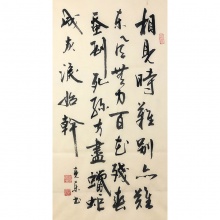 相見時難別亦難
东风無力百花残春
蚕到死絲方盡蠟炬
成灰淚始幹